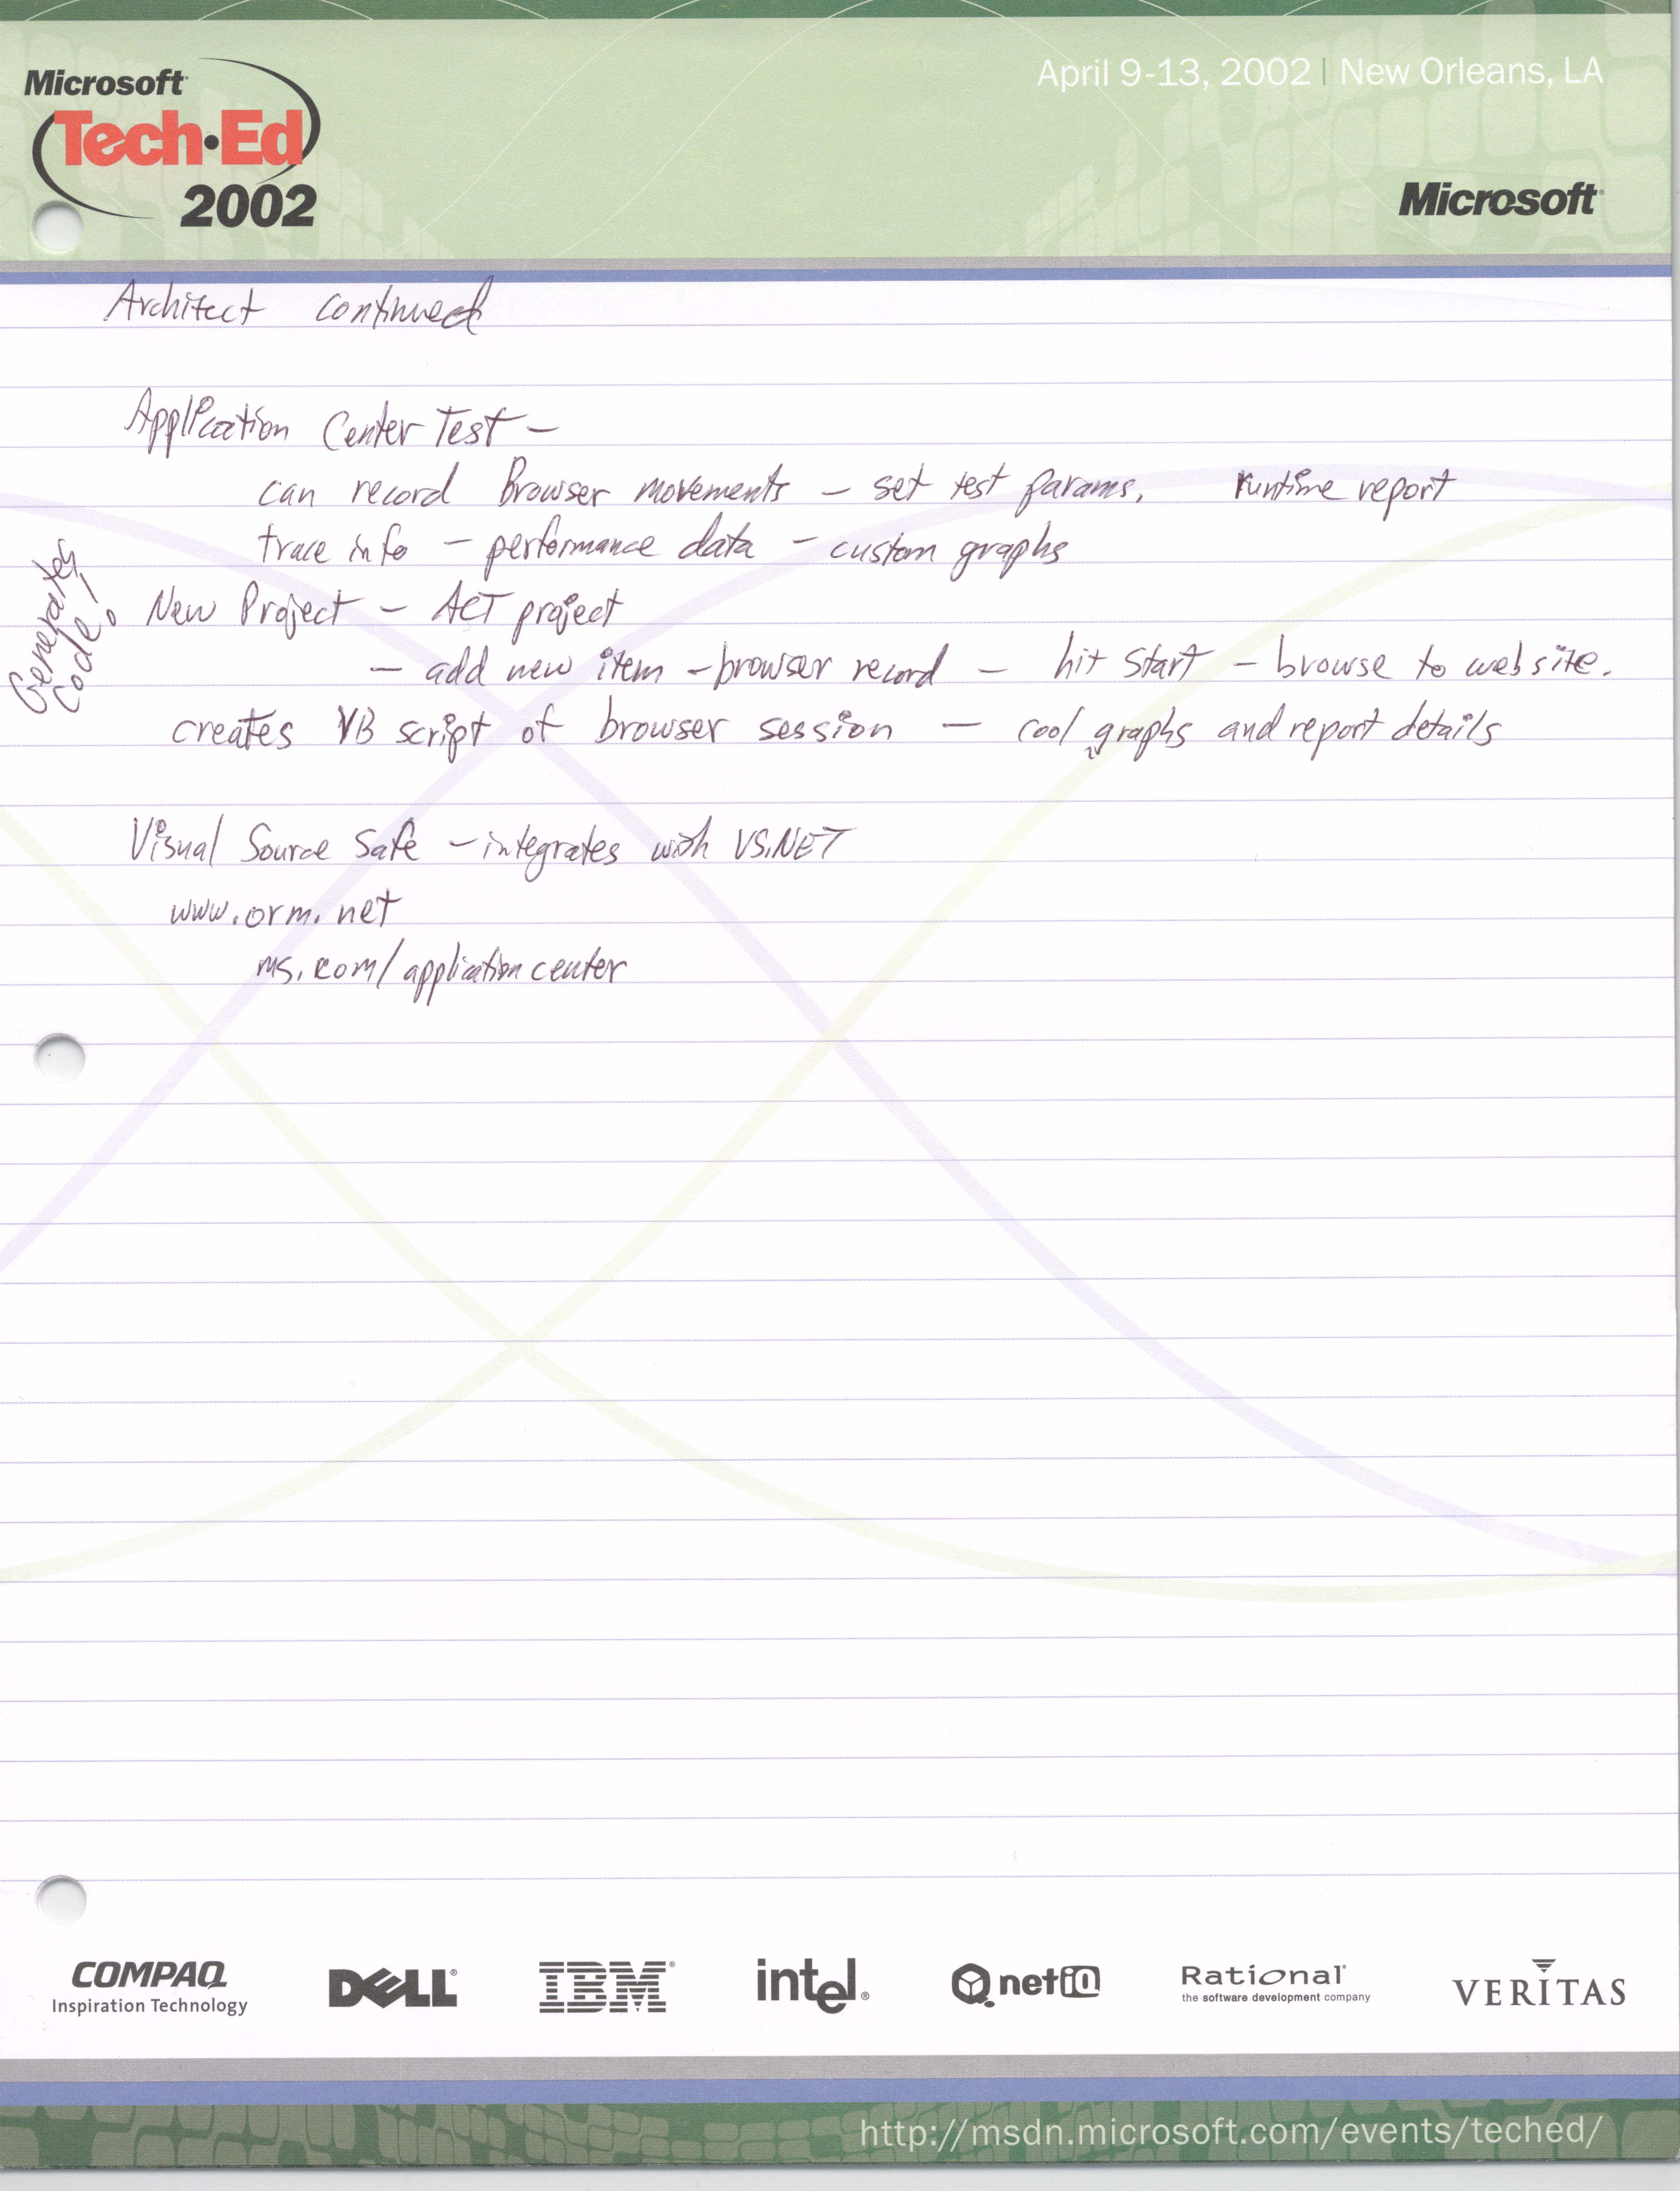 Microsoft
Tech·Ed
2002
April 9-13, 2002 | New Orleans, LA
Microsoft
Architect continued
Application Center Test –
can record Browser movements – set test params, runtime report
trace info – performance data – custom graphs
Generates
Code!
New Project – ACT project
– add new item – browser record – hit Start – browse to website.
creates VB script of browser session – cool graphs and report details
Visual Source Safe – integrates with VS.NET
www.orm.net
ms.com/applicationcenter
COMPAQ
Inspiration Technology
DELL
IBM
intel
netiQ
Rational
the software development company
VERITAS
http://msdn.microsoft.com/events/teched/